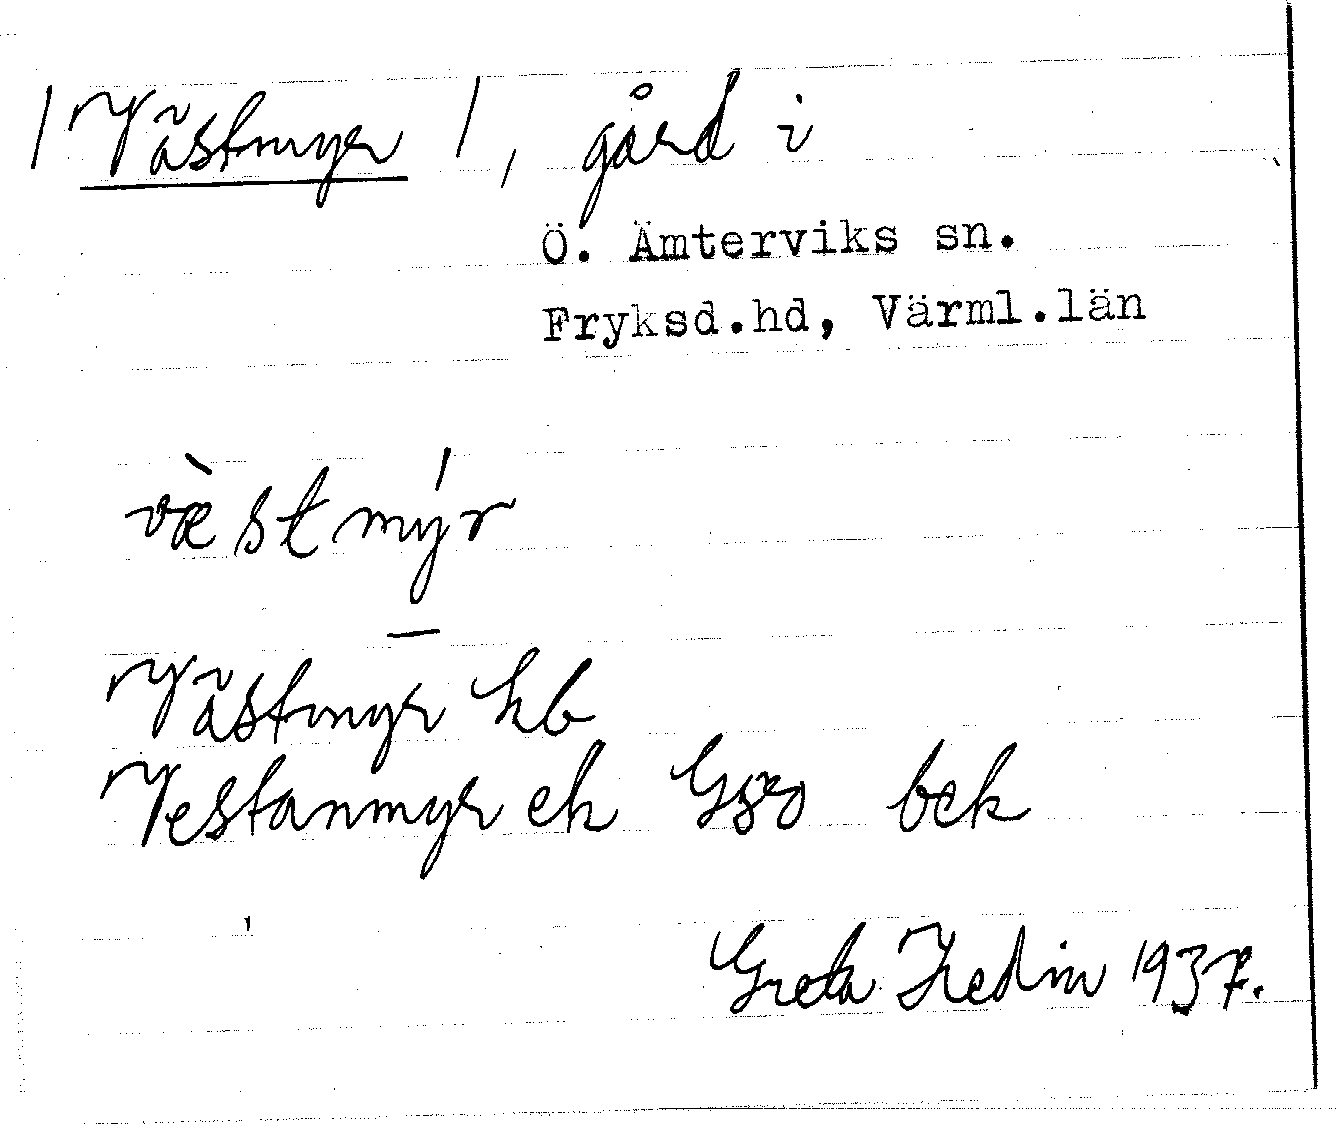 / Västmyr /, gård i
Ö. Ämterviks sn.
Fryksd.hd, Värml.län
væ̀stmýr
—
Västmyr hb
Vestanmyr ek bek
Greta Hedin 1937.